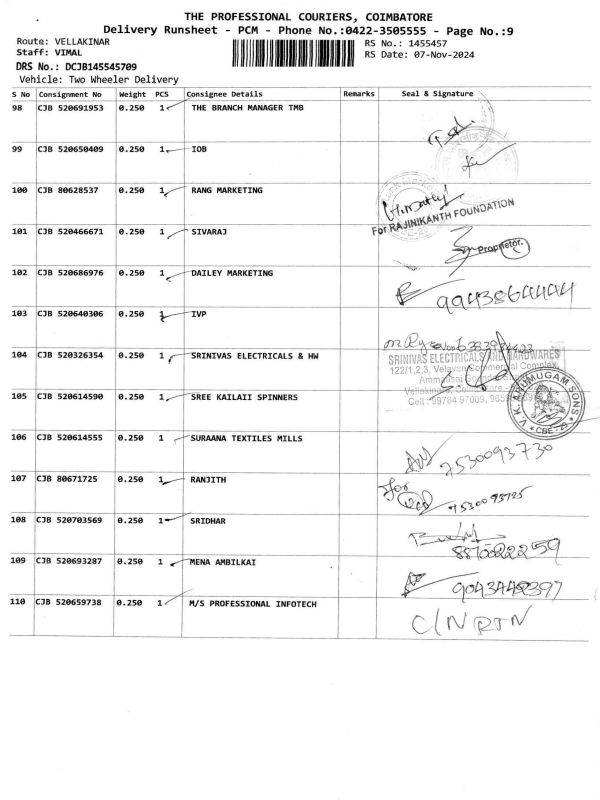 THE PROFESSIONAL COURIERS, COIMBATORE
Delivery Runsheet - PCM - Phone No.:0422-3505555 - Page No.:9
Route: VELLAKINAR
RS No.: 1455457
Staff: VIMAL
RS Date: 07-Nov-2024
DRS No.: DCJB145545709
Vehicle: Two Wheeler Delivery
S No Consignment No Weight PCS Consignee Details Remarks Seal & Signature
98 CJB 520691953 0.250 1 THE BRANCH MANAGER TMB
99 CJB 520650409 0.250 1 IOB
100 CJB 80628537 0.250 1 RANG MARKETING
For RAJINIKANTH FOUNDATION
101 CJB 520466671 0.250 1 SIVARAJ
Proprietor.
102 CJB 520686976 0.250 1 DAILEY MARKETING
9943864444
103 CJB 520640306 0.250 1 IVP
104 CJB 520326354 0.250 1 SRINIVAS ELECTRICALS & HW
SRINIVAS ELECTRICALS AND HARDWARES
122/1,2,3, Velavan Commercial Complex
Cell : 09784 97009,
105 CJB 520614590 0.250 1 SREE KAILAII SPINNERS
V.K. ARUMUGAM SONS
* CBE-29 *
106 CJB 520614555 0.250 1 SURAANA TEXTILES MILLS
7530093730
107 CJB 80671725 0.250 1 RANJITH
for
7530093725
108 CJB 520703569 0.250 1 SRIDHAR
109 CJB 520693287 0.250 1 MENA AMBILKAI
110 CJB 520659738 0.250 1 M/S PROFESSIONAL INFOTECH
C/N RTN